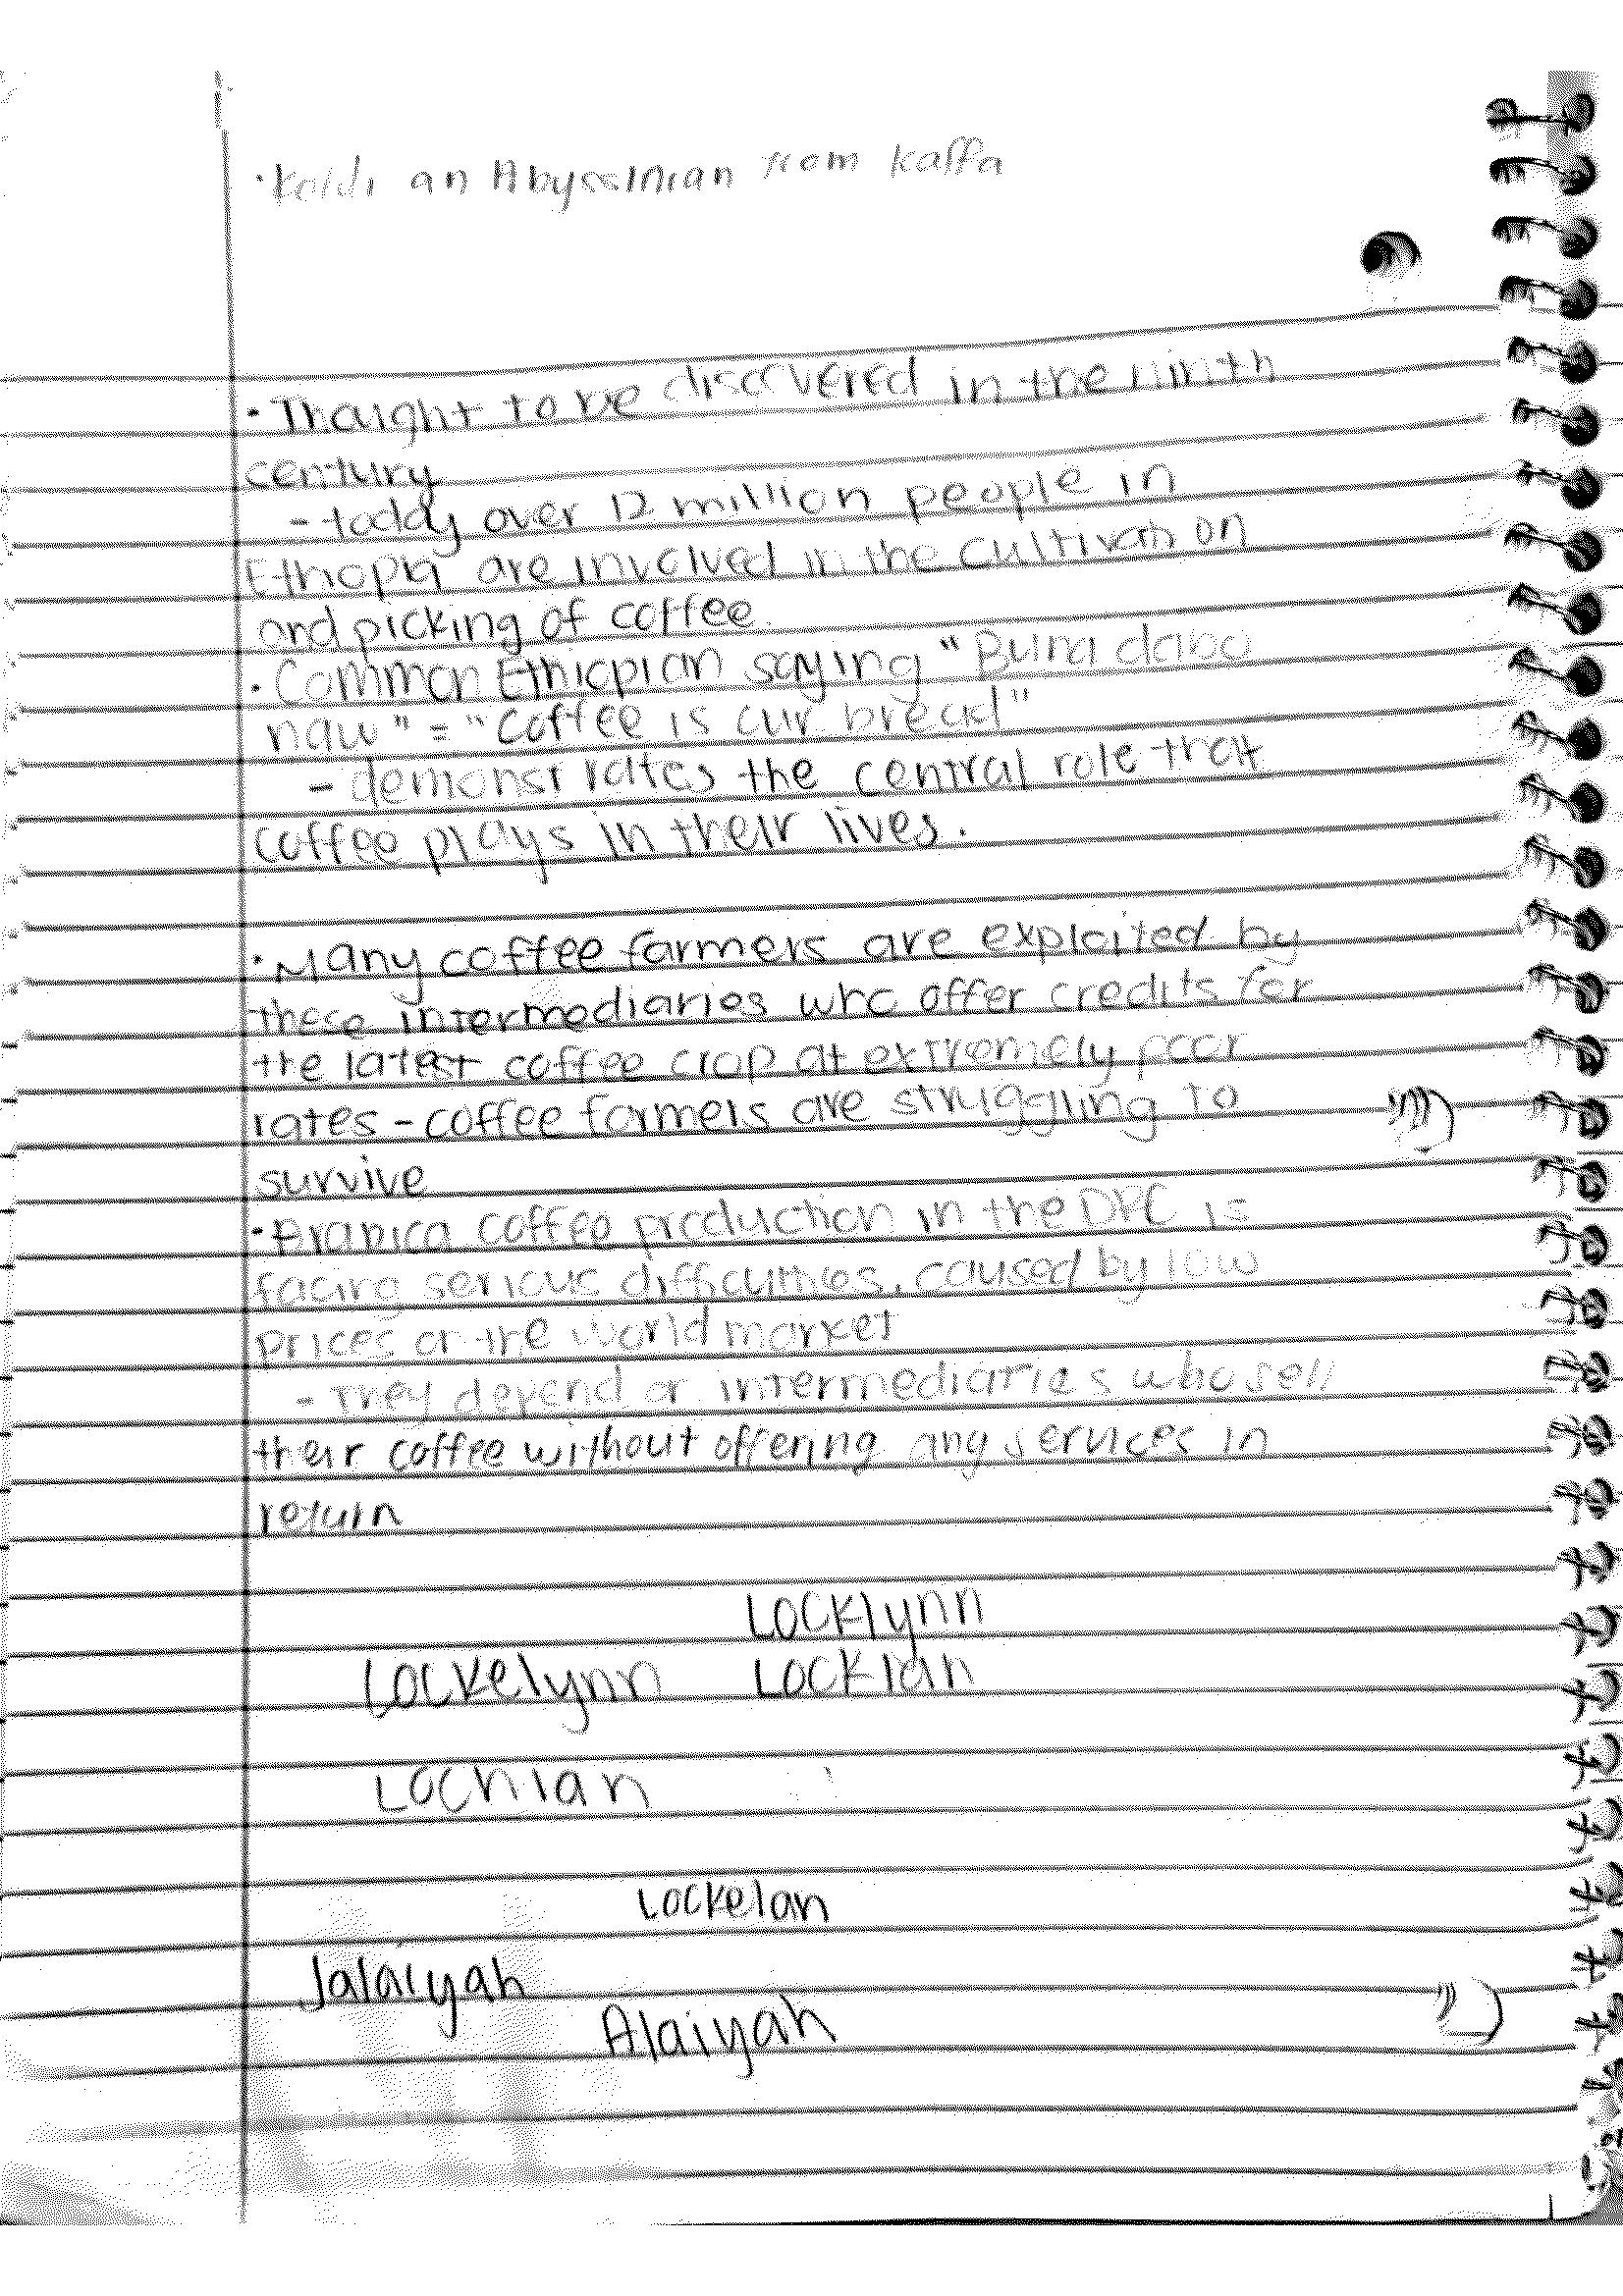 · Kaldi an Abyssinian from Kaffa
· Thought to be discovered in the ninth
century
- today over 12 million people in
Ethiopia are involved in the cultivation
and picking of coffee.
· Common Ethiopian saying "Buna dabo
naw" = "Coffee is our bread"
- demonstrates the central role that
coffee plays in their lives.
· Many coffee farmers are exploited by
these intermediaries who offer credits for
the latest coffee crop at extremely poor
rates - coffee farmers are struggling to
survive
· Arabica coffee production in the DRC is
facing serious difficulties, caused by low
prices on the world market
- They depend on intermediaries who sell
their coffee without offering any services in
return
Locklynn
Lockelynn Locklan
Lochlan
Lockelan
Jalaiyah
Alaiyah